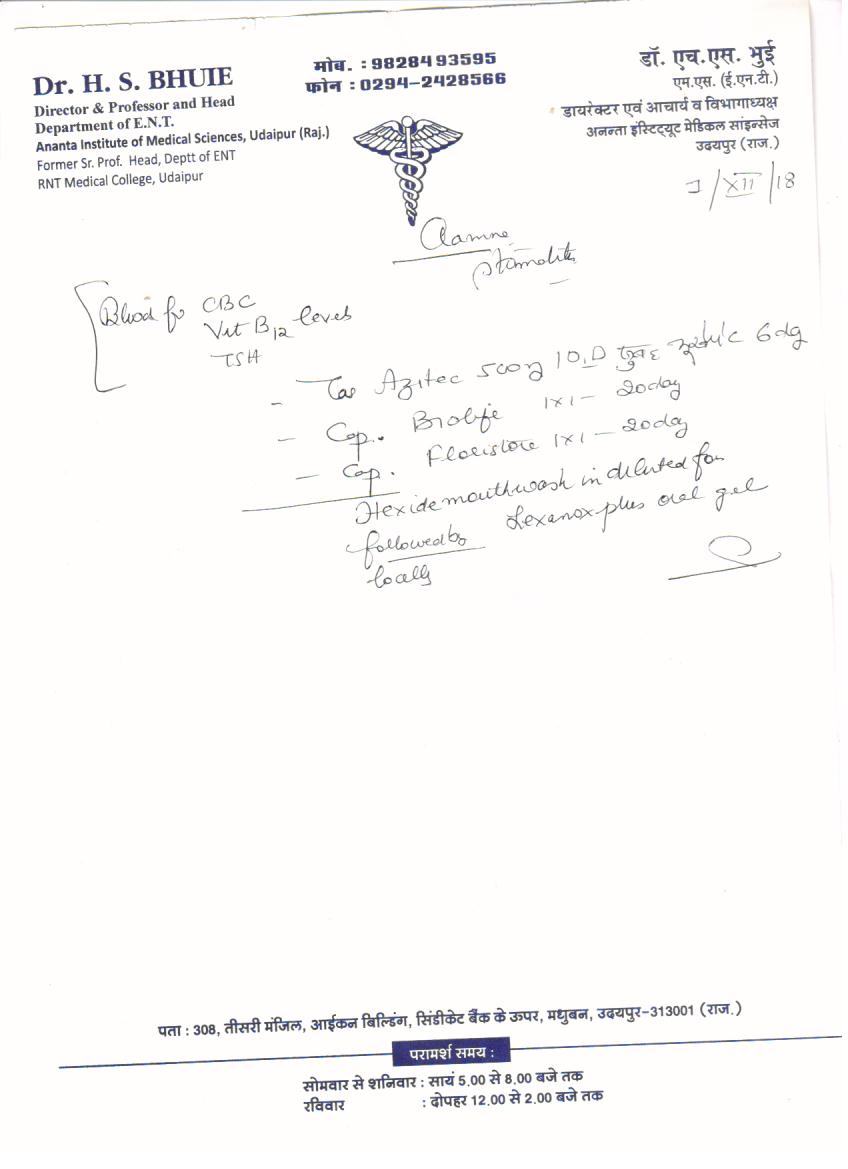 Dr. H. S. BHUIE
Director & Professor and Head
Department of E.N.T.
Ananta Institute of Medical Sciences, Udaipur (Raj.)
Former Sr. Prof. Head, Deptt of ENT
RNT Medical College, Udaipur
मोब. : 9828493595
फोन : 0294-2428566
डॉ. एच.एस. भुई
एम.एस. (ई.एन.टी.)
डायरेक्टर एवं आचार्य व विभागाध्यक्ष
अनन्ता इंस्टिट्यूट मेडिकल साइन्सेज
उदयपुर (राज.)
/XII/18
Blood for CBC
Vit B12 levels
TSH
- Tab Azitec 500mg 1 O.D सुबह
- Cap. 1x1 - 20day
- Cap. 1x1 - 20day
Hexide mouthwash in diluted for
followed by Lexanox plus oral gel
locally
पता : 308, तीसरी मंजिल, आईकन बिल्डिंग, सिंडीकेट बैंक के ऊपर, मधुबन, उदयपुर-313001 (राज.)
परामर्श समय :
सोमवार से शनिवार : सायं 5.00 से 8.00 बजे तक
रविवार : दोपहर 12.00 से 2.00 बजे तक